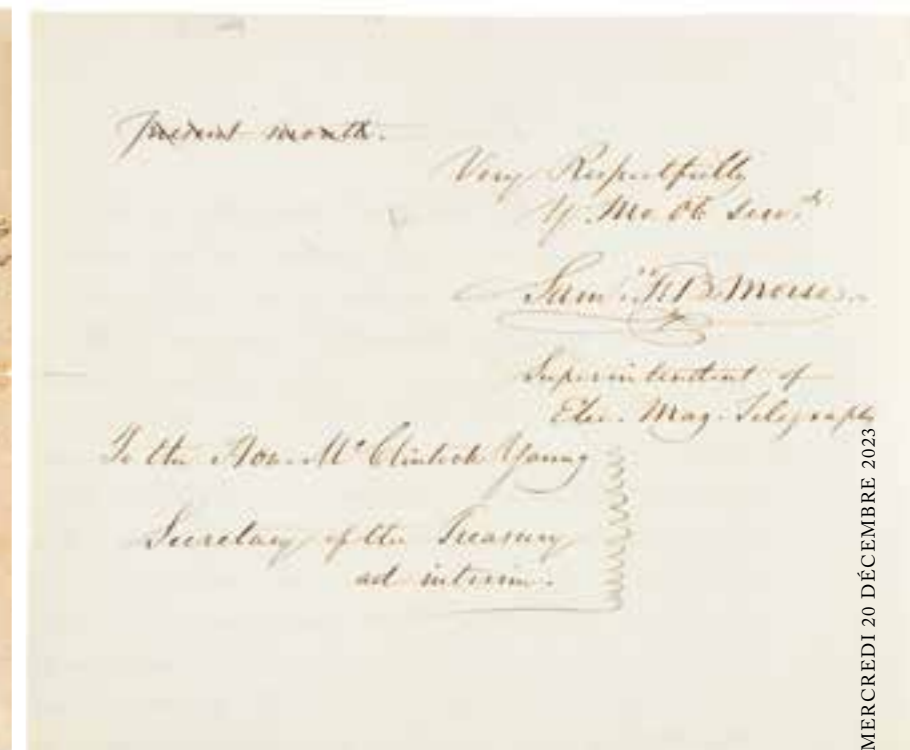 present month.
Very Respectfully
Yr. Mo. Ob Servt.
Saml. F. B. Morse.
Superintendent of
Elec. Mag. Telegraphs
To the Hon. Mc Clintock Young
Secretary of the Treasury
ad interim.
MERCREDI 20 DÉCEMBRE 2023